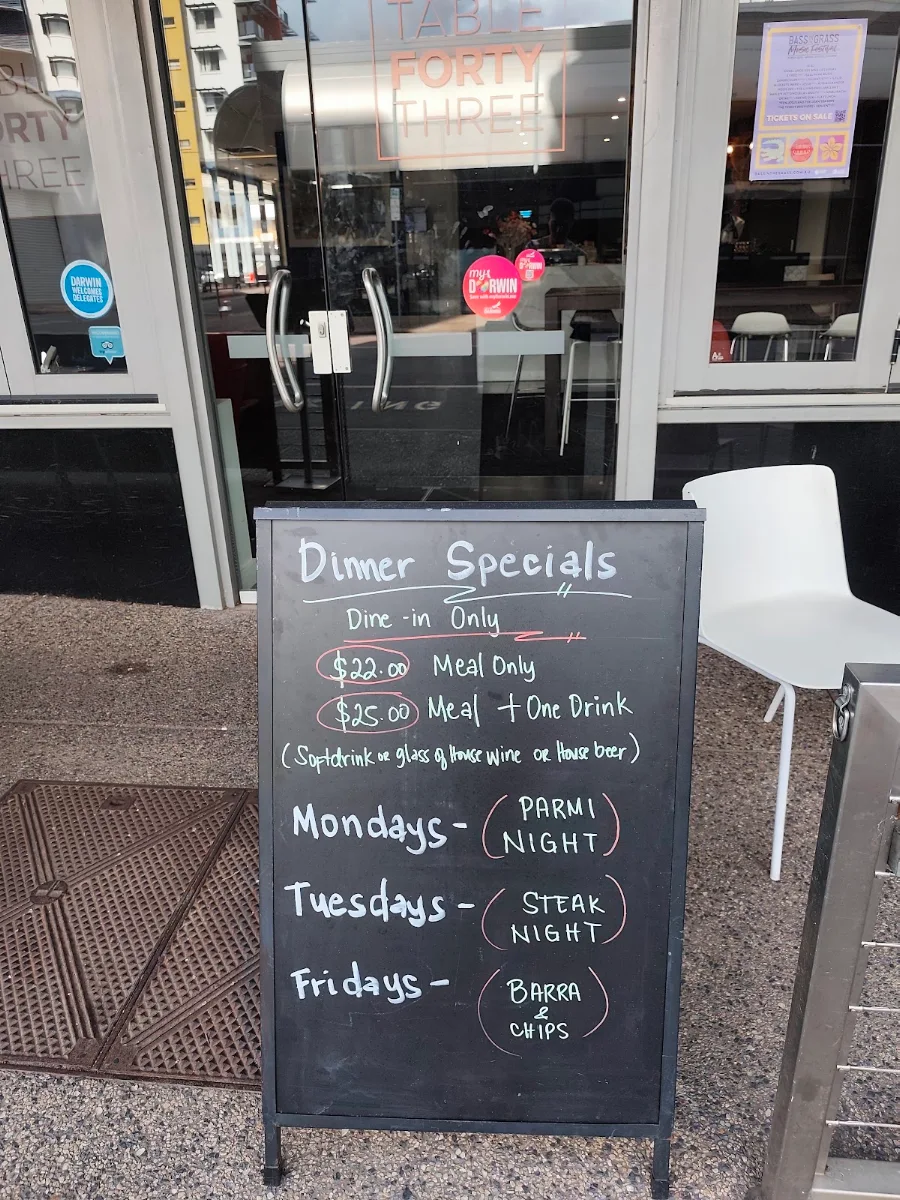 TABLE
FORTY
THREE
BL
ORTY
HREE
BASS IN THE GRASS
Music Festival
TICKETS ON SALE
DARWIN
WELCOMES
DELEGATES
my
DARWIN
my
DARWIN
Dinner Specials
Dine-in Only
$22.00 Meal Only
$25.00 Meal + One Drink
(Softdrink or glass of House wine or House beer)
Mondays- (PARMI
NIGHT)
Tuesdays - (STEAK
NIGHT)
Fridays - (BARRA
&
CHIPS)